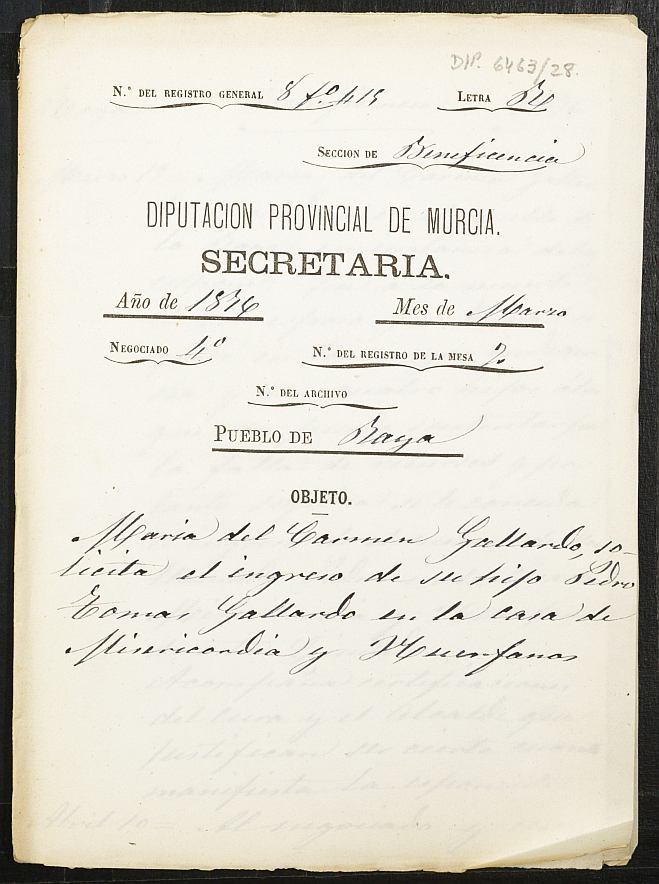 DIP. 6463/28.
N.º DEL REGISTRO GENERAL 8 fº 418 LETRA
SECCION DE Beneficencia
DIPUTACION PROVINCIAL DE MURCIA.
SECRETARIA.
Año de 1876 Mes de Marzo
NEGOCIADO 4º N.º DEL REGISTRO DE LA MESA 7.
N.º DEL ARCHIVO
PUEBLO DE Raya
OBJETO.
Maria del Carmen Gallardo, so-
licita el ingreso de su hijo Pedro
Tomas Gallardo en la casa de
Misericordia y Huerfanos